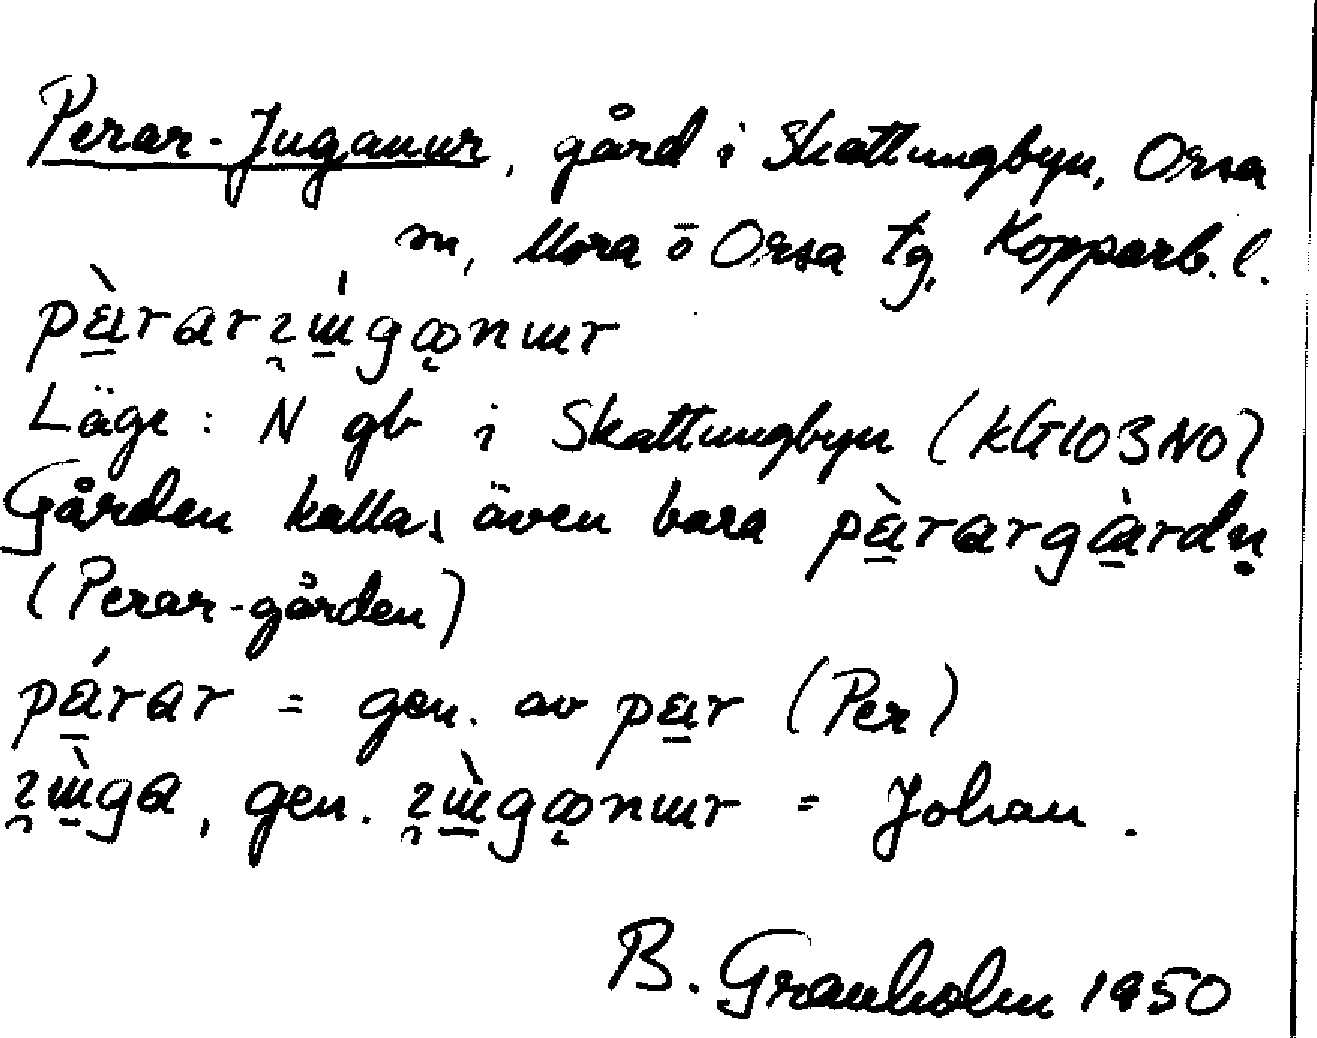 Perar-Juganur, gård i Skattungbyn, Orsa
sn, Mora o Orsa tg, Kopparb. l.
Läge: N gb i Skattungbyn (KG103NO)
Gården kallas även bara
(Perar-gården)
= gen. av (Per)
gen. = Johan.
B. Granholm 1950